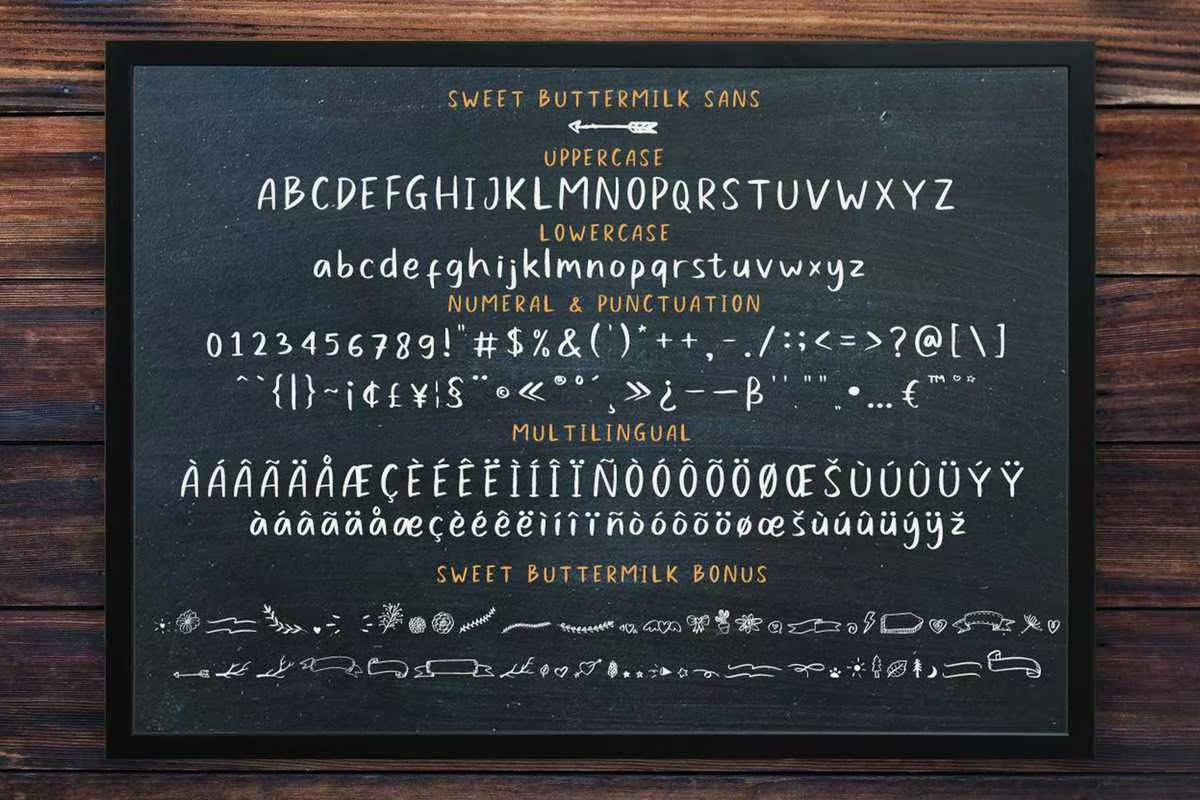 SWEET BUTTERMILK SANS
UPPERCASE
ABCDEFGHIJKLMNOPQRSTUVWXYZ
LOWERCASE
abcdefghijklmnopqrstuvwxyz
NUMERAL & PUNCTUATION
0123456789!"#$%&(')*++,-./:;<=>?@[\]
^`{|}~¡¢£¥¦§¨©«®°´¸»¿–—β'' "" „•…€™♡☆
MULTILINGUAL
ÀÁÂÃÄÅÆÇÈÉÊËÌÍÎÏÑÒÓÔÕÖØŒŠÙÚÛÜÝŸ
àáâãäåæçèéêëìíîïñòóôõöøœšùúûüýÿž
SWEET BUTTERMILK BONUS